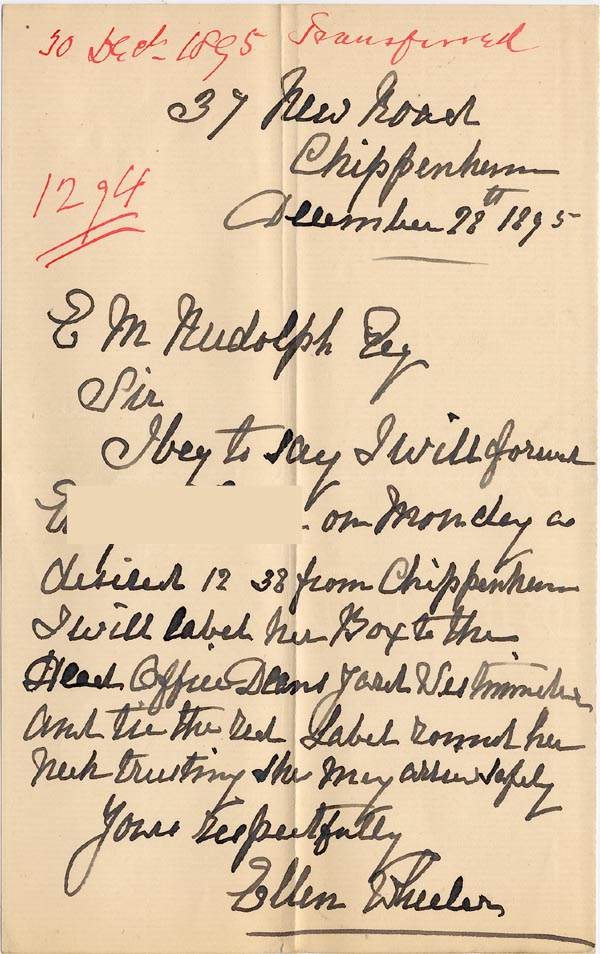 30 Dec. 1895 Transferred
37 New Road
Chippenham
1294
December 28th 1895
E M Rudolph Esq
Sir
I beg to say I will forward
E on Monday as
desired 12 38 from Chippenham
I will label her Box to the
Head Office Deans Yard Westminster
and tie the red Label round her
neck trusting she may arrive safely
Yours respectfully
Ellen Wheeler